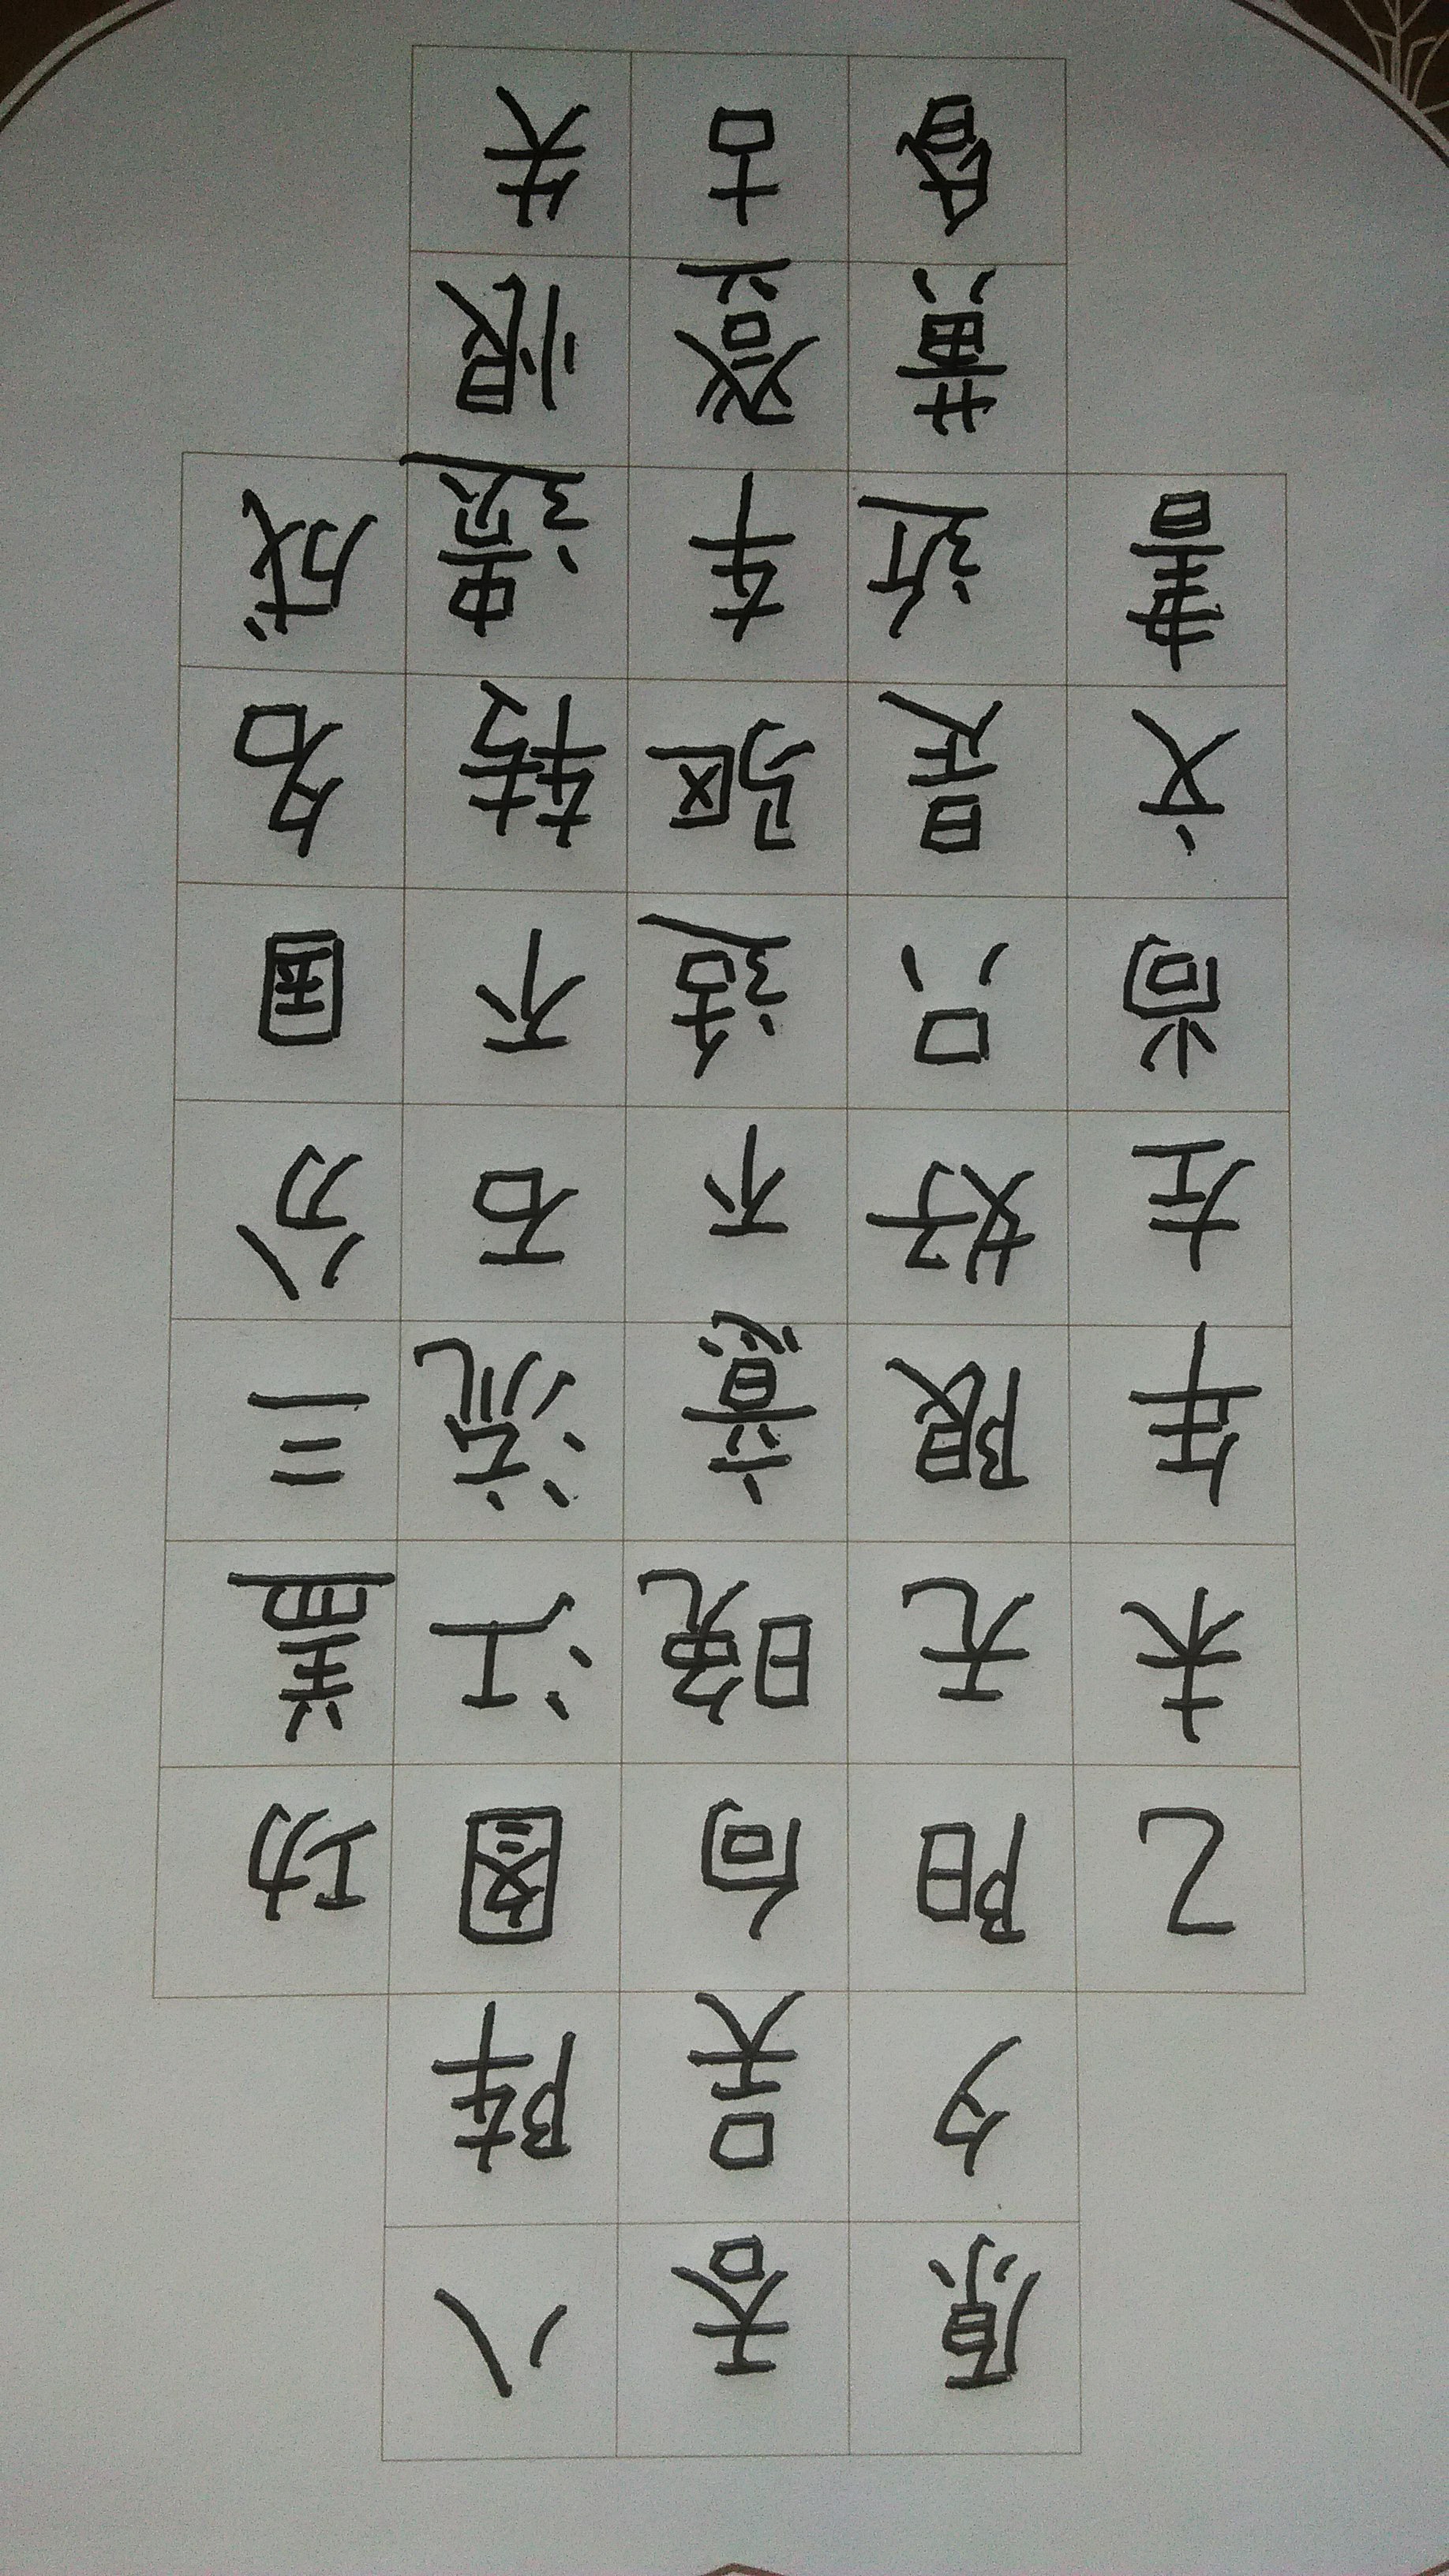 功盖三分国名成
八阵图江流石不转遗恨失
吞吴向晚意不适驱车登古
原夕阳无限好只是近黄昏
乙未年左尚文書